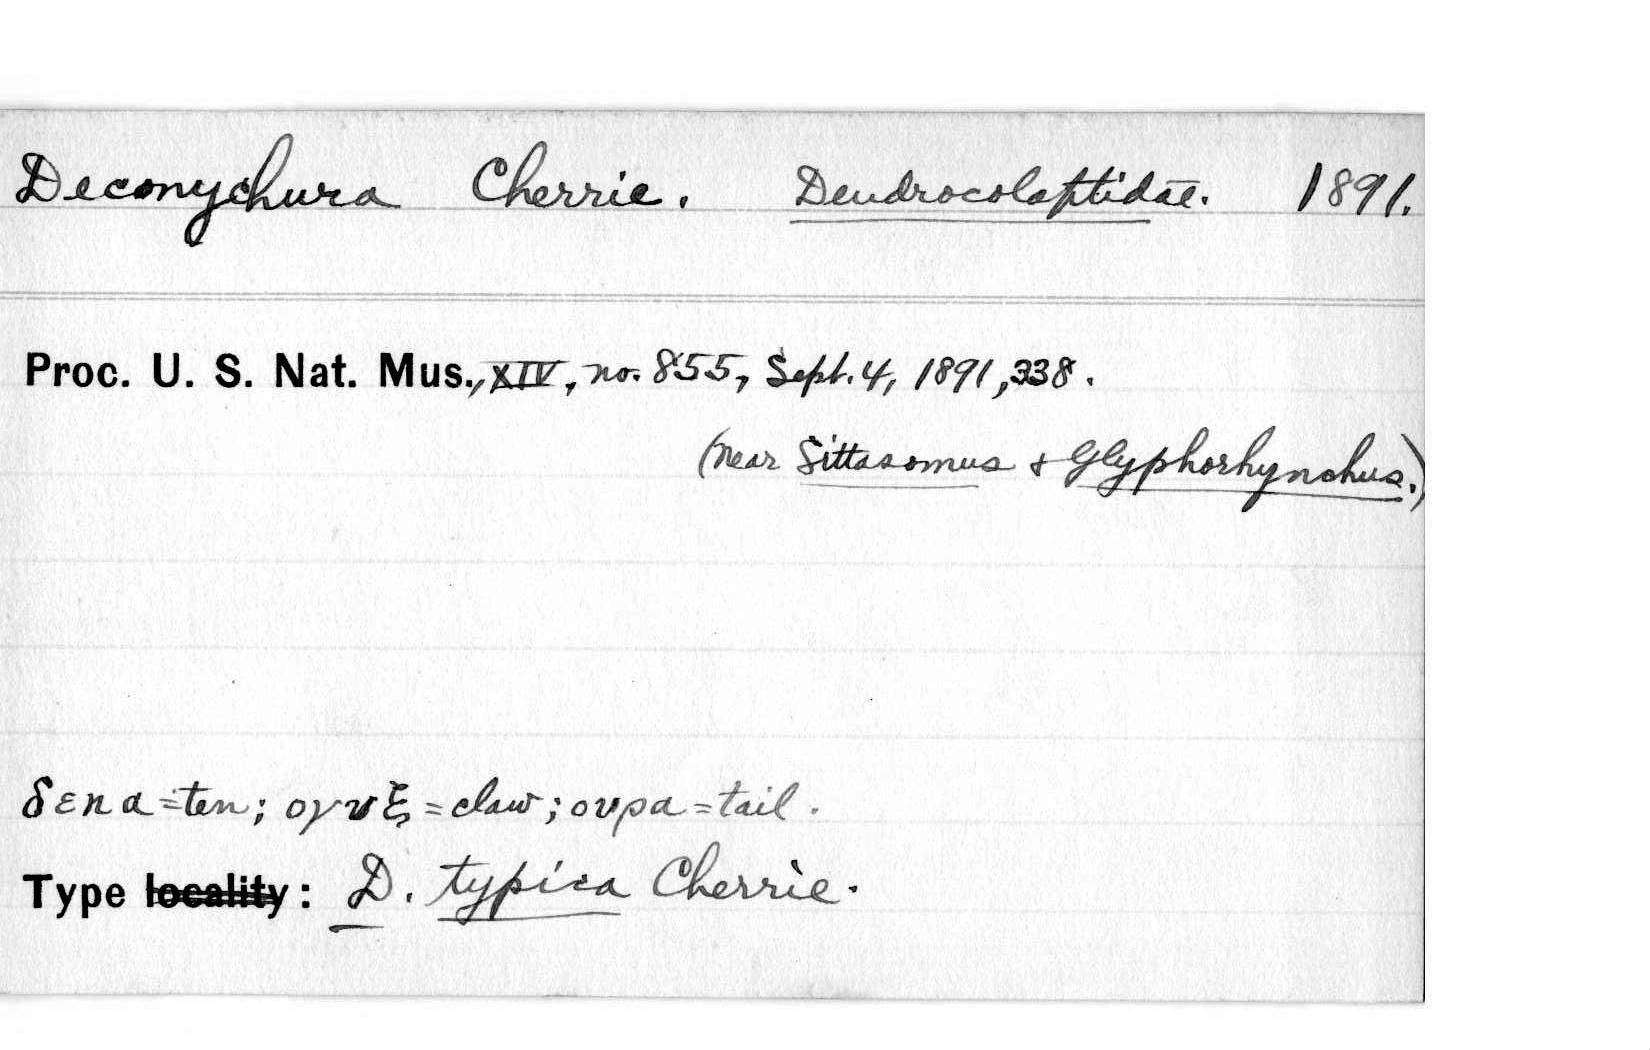 Deconychura Cherrie. Dendrocolaptidae. 1891.
Proc. U. S. Nat. Mus., XIV, no. 855, Sept. 4, 1891, 338.
(near Sittasomus & Glyphorhynchus.)
δεκα=ten; ονυξ=claw; ουρα=tail.
Type locality: D. typica Cherrie.